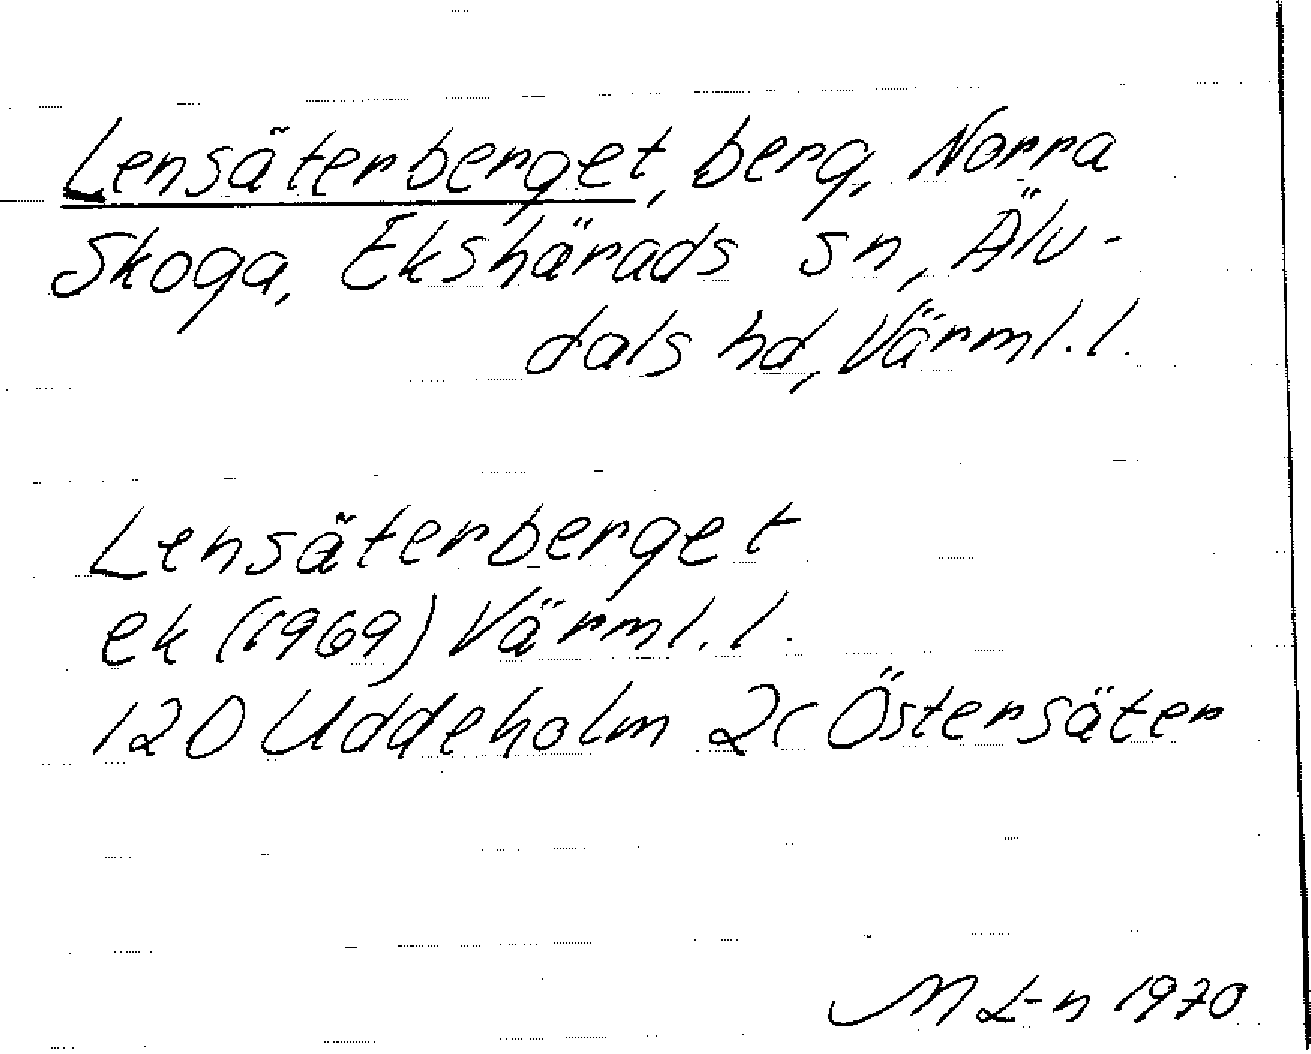 Lensäterberget, berg, Norra
Skoga, Ekshärads sn, Älv-
dals hd, Värml. l.
Lensäterberget
ek (1969) Värml. l.
12D Uddeholm 2c Östersäter
M L-n 1970